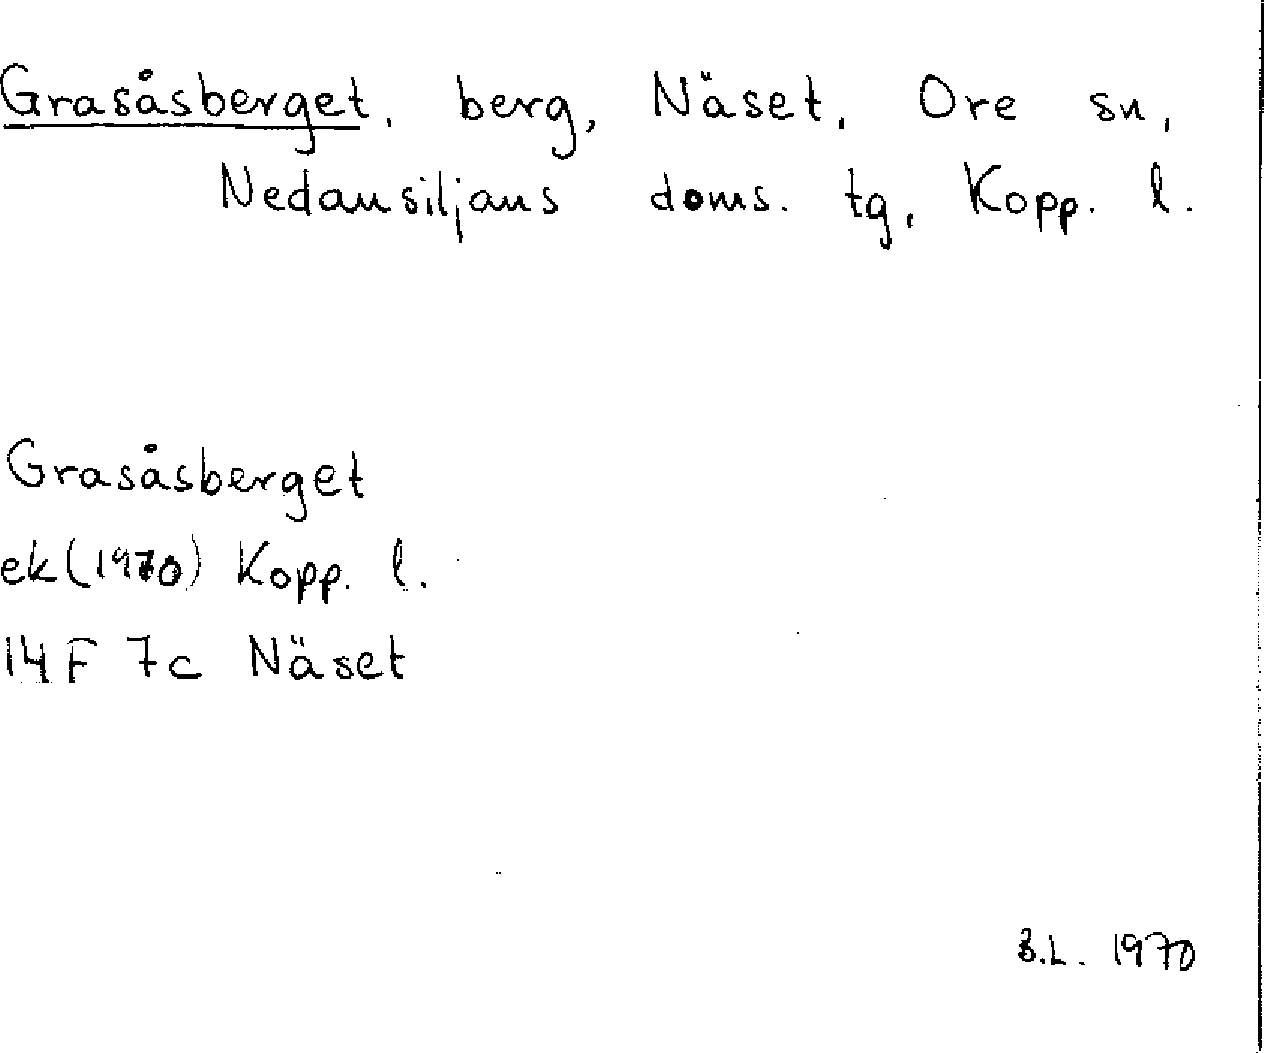 Grasåsberget, berg, Näset, Ore sn,
Nedansiljans doms. tg, Kopp. l.
Grasåsberget
ek (1970) Kopp. l.
14 F 7c Näset
B.L. 1970